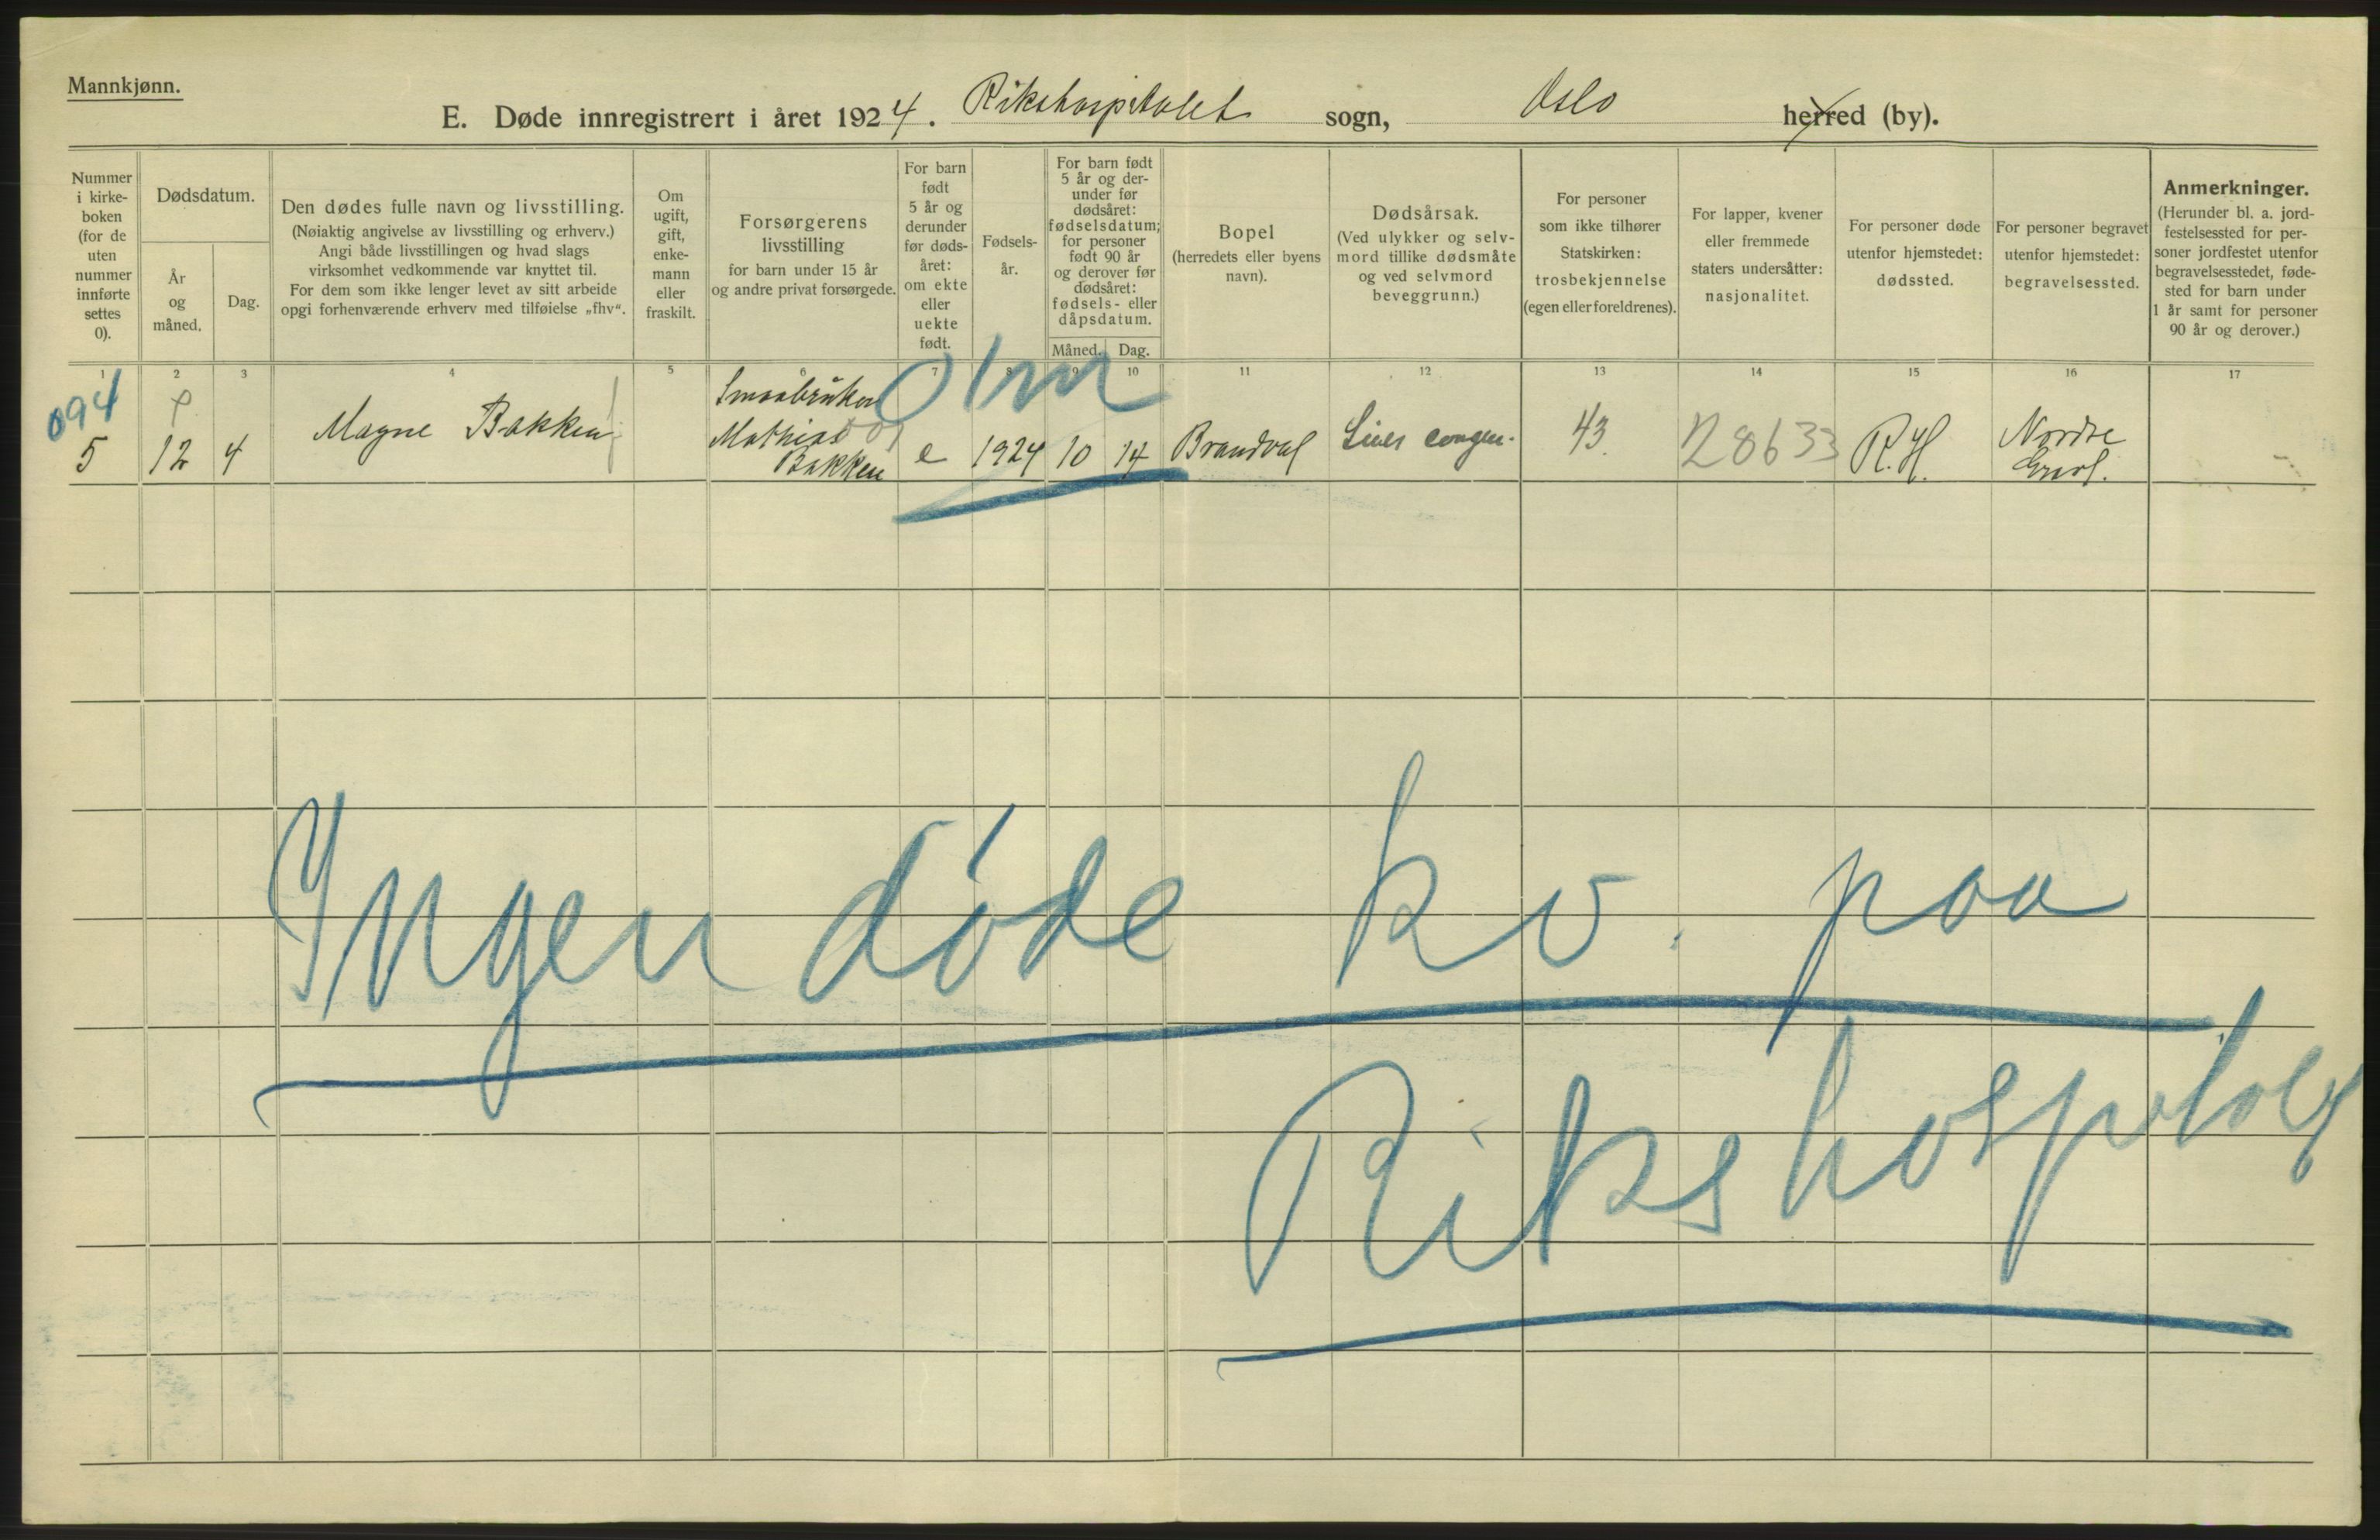 Mannkjønn.
E. Døde innregistrert i året 1924. Rikshospitalet sogn, Oslo herred (by).
Nummer
i kirke-
boken
(for de
uten
nummer
innførte
settes
0).
Dødsdatum.
År
og
måned.
Dag.
Den dødes fulle navn og livsstilling.
(Nøiaktig angivelse av livsstilling og erhverv.)
Angi både livsstillingen og hvad slags
virksomhet vedkommende var knyttet til.
For dem som ikke lenger levet av sitt arbeide
opgi forhenværende erhverv med tilføielse „fhv“.
Om
ugift,
gift,
enke-
mann
eller
fraskilt.
Forsørgerens
livsstilling
for barn under 15 år
og andre privat forsørgede.
For barn
født
5 år og
derunder
før døds-
året:
om ekte
eller
uekte
født.
Fødsels-
år.
For barn født
5 år og der-
under før
dødsåret:
fødselsdatum;
for personer
født 90 år
og derover før
dødsåret:
fødsels- eller
dåpsdatum.
Måned.
Dag.
Bopel
(herredets eller byens
navn).
Dødsårsak.
(Ved ulykker og selv-
mord tillike dødsmåte
og ved selvmord
beveggrunn.)
For personer
som ikke tilhører
Statskirken:
trosbekjennelse
(egen eller foreldrenes).
For lapper, kvener
eller fremmede
staters undersåtter:
nasjonalitet.
For personer døde
utenfor hjemstedet:
dødssted.
For personer begravet
utenfor hjemstedet:
begravelsessted.
Anmerkninger.
(Herunder bl. a. jord-
festelsessted for per-
soner jordfestet utenfor
begravelsesstedet, føde-
sted for barn under
1 år samt for personer
90 år og derover.)
1 2 3 4 5 6 7 8 9 10 11 12 13 14 15 16 17
094
Smaabruker
5 12 4 Magne Bakken Mathias e 1924 10 14 Brandval 43 28633 R.H. Nordre
Bakken
Ingen døde kv. paa
Rikshospitalet